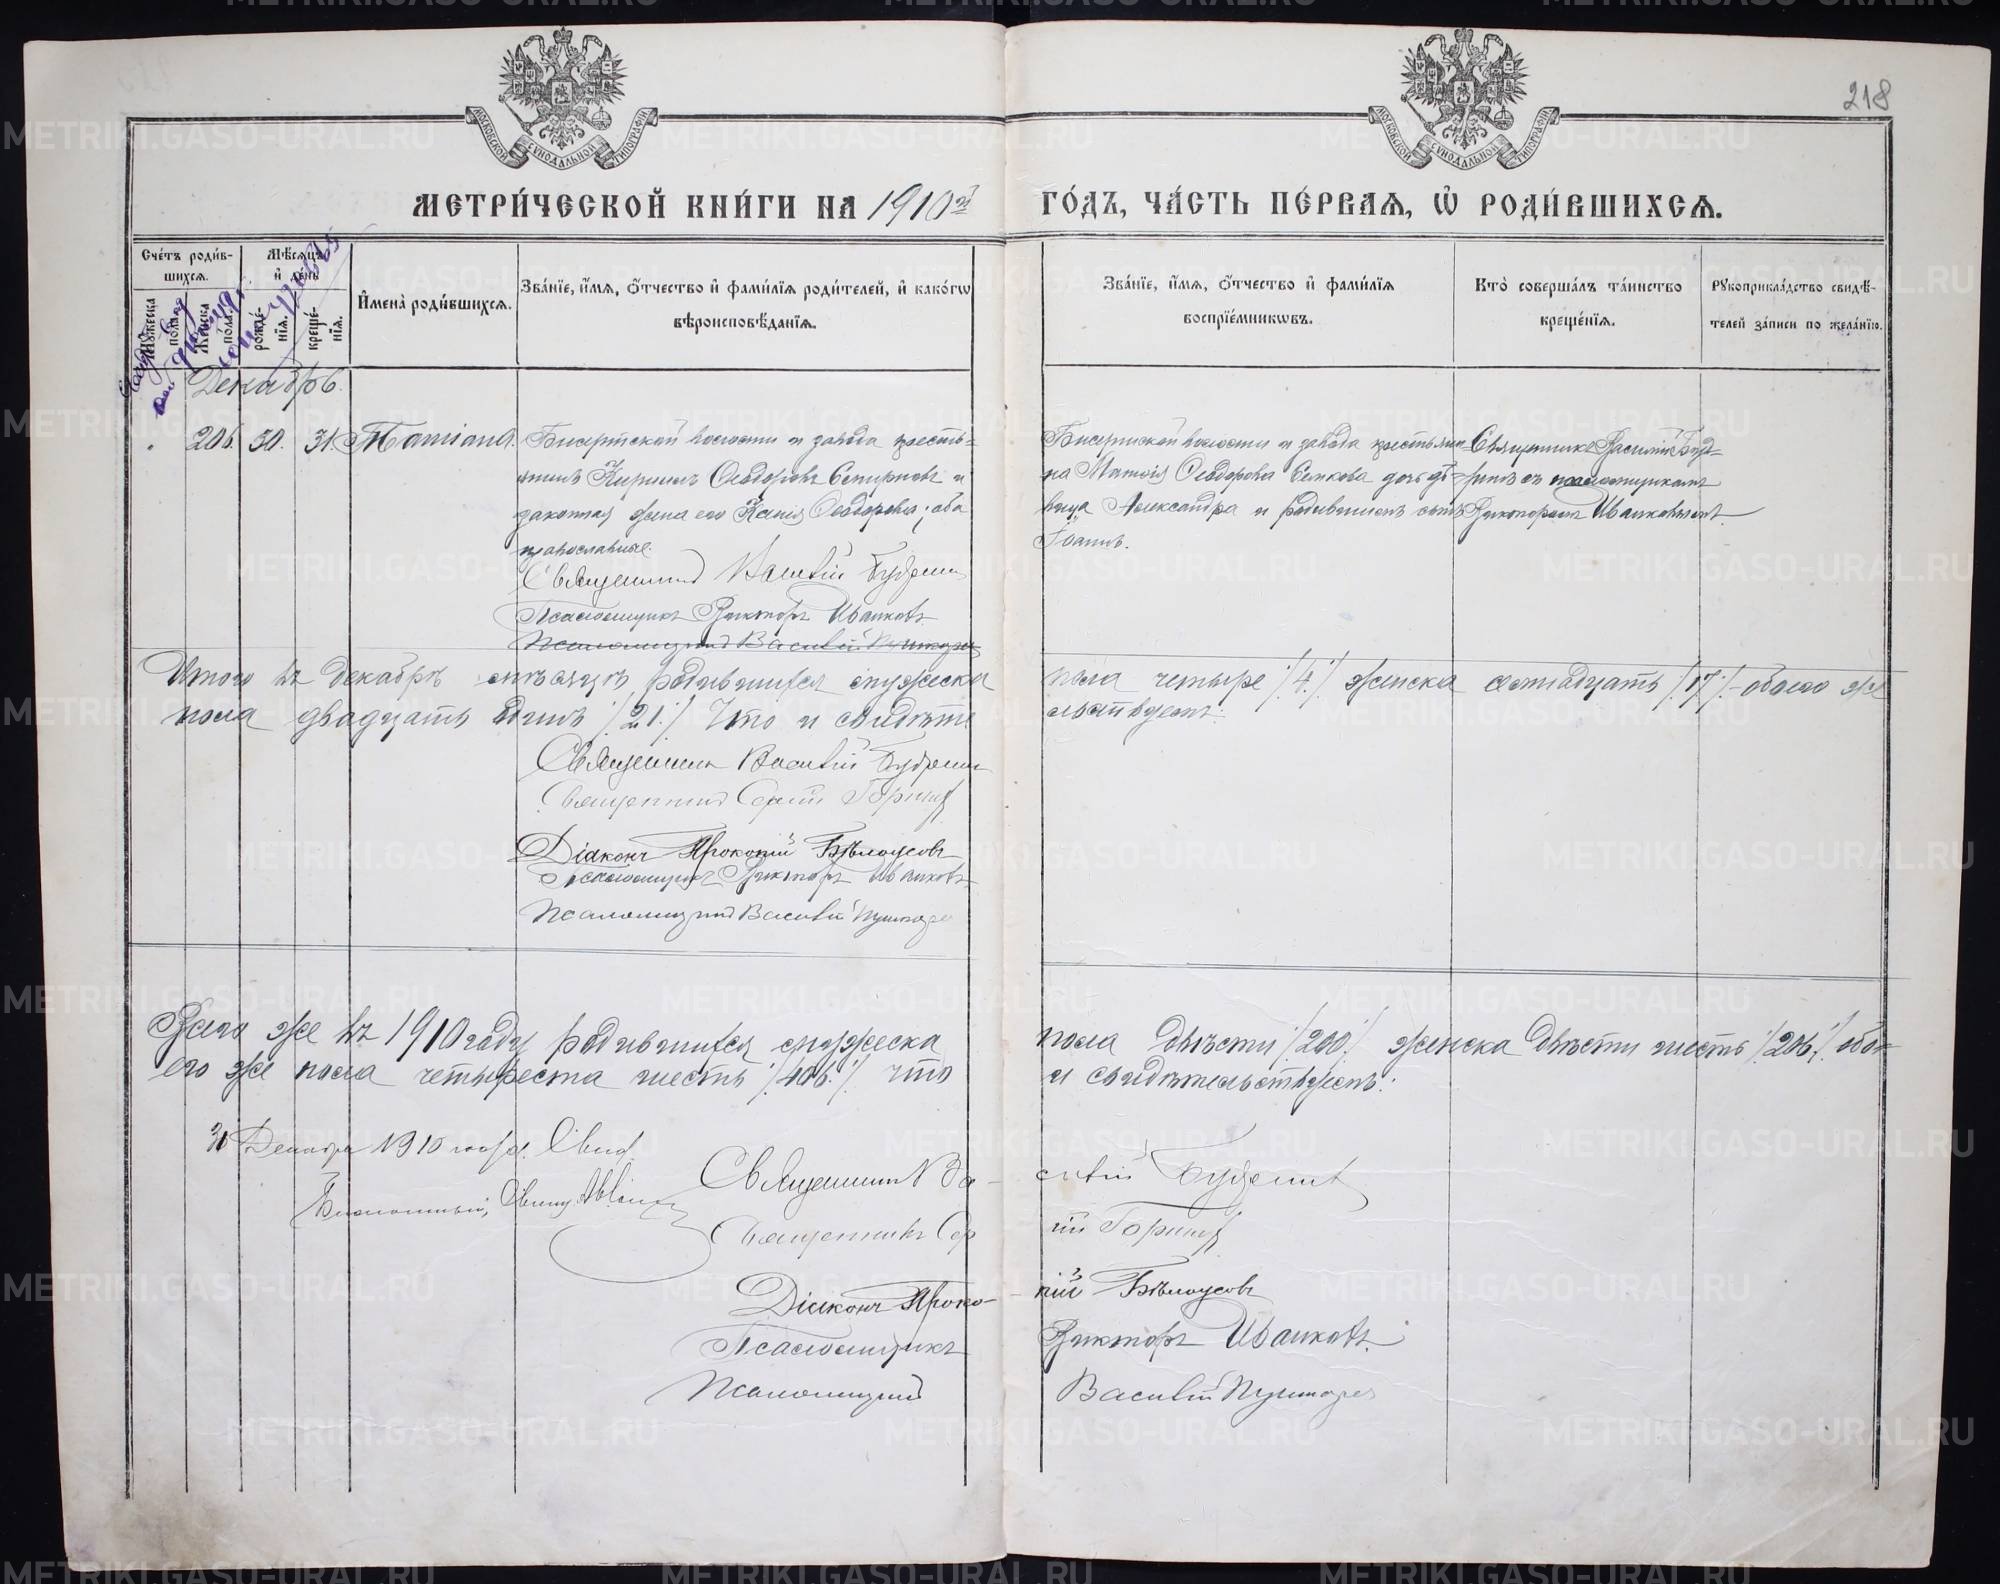 218
МОСКОВСКОЙ СѴНОДАЛЬНОЙ ТИПОГРАФІИ
МОСКОВСКОЙ СѴНОДАЛЬНОЙ ТИПОГРАФІИ
МЕТРИ́ЧЕСКОЙ КНИ́ГИ НА 1910й ГО́ДЪ, ЧА́СТЬ ПЕ́РВАѦ, Ѡ҆ РОДИ́ВШИХСѦ.
Сче́тъ роди́вшихсѧ.
Мѣ́сѧцъ и҆ де́нь
Мꙋ́жеска по́ла.
Же́нска по́ла.
рожде́нїѧ.
креще́нїѧ.
И҆мена̀ роди́вшихсѧ.
Зва́нїе, и҆́мѧ, ѻ҆́тчество и҆ фами́лїѧ роди́телей, и҆ како́гѡ вѣроисповѣ́данїѧ.
Зва́нїе, и҆́мѧ, ѻ҆́тчество и҆ фами́лїѧ воспрїе́мникѡвъ.
Кто̀ соверша́лъ та́инство креще́нїѧ.
Рꙋкоприкла́дство свидѣ́телей за́писи по жела́нїю.
Декабрь.
206. 30. 31. Татiана.
Бисертской волости и завода крестьянинъ Кириллъ Ѳеодоровъ Смирновъ и
законная жена его Ѳеодорова; оба
православные.
Священникъ Василій Будринъ
Псаломщикъ Викторъ Иваковъ.
Псаломщикъ Василій Пушкарев
Бисертской волости и завода крестьянина Ѳеодорова дочь дѣвица Александра и сынъ
Іоаннъ.
Священникъ Василій Будринъ съ псаломщикомъ
Викторомъ Иваковымъ.
Итого въ Декабрѣ мѣсяцѣ родившихся мужеска пола четыре /4./ женска семнадцать /17/ – обоего же
пола двадцать одинъ /21./ Что и свидѣтельствуемъ:
Священникъ Василій Будринъ
Священникъ Сергій Горныхъ
Діаконъ Прокопій Бѣлоусовъ
Псаломщикъ Викторъ Иваковъ
Псаломщикъ Василій Пушкарев
Всего же въ 1910 году родившихся мужеска пола двѣсти /200/. женска двѣсти шесть /206/. обоего же пола четыреста шесть /406./ что и свидѣтельствуемъ:
31 Декабря 1910 года. Свид.
Священникъ Василій Будринъ
Священникъ Сергій Горныхъ
Діаконъ Прокопій Бѣлоусовъ
Псаломщикъ Викторъ Иваковъ.
Псаломщикъ Василій Пушкарев
METRIKI.GASO-URAL.RU